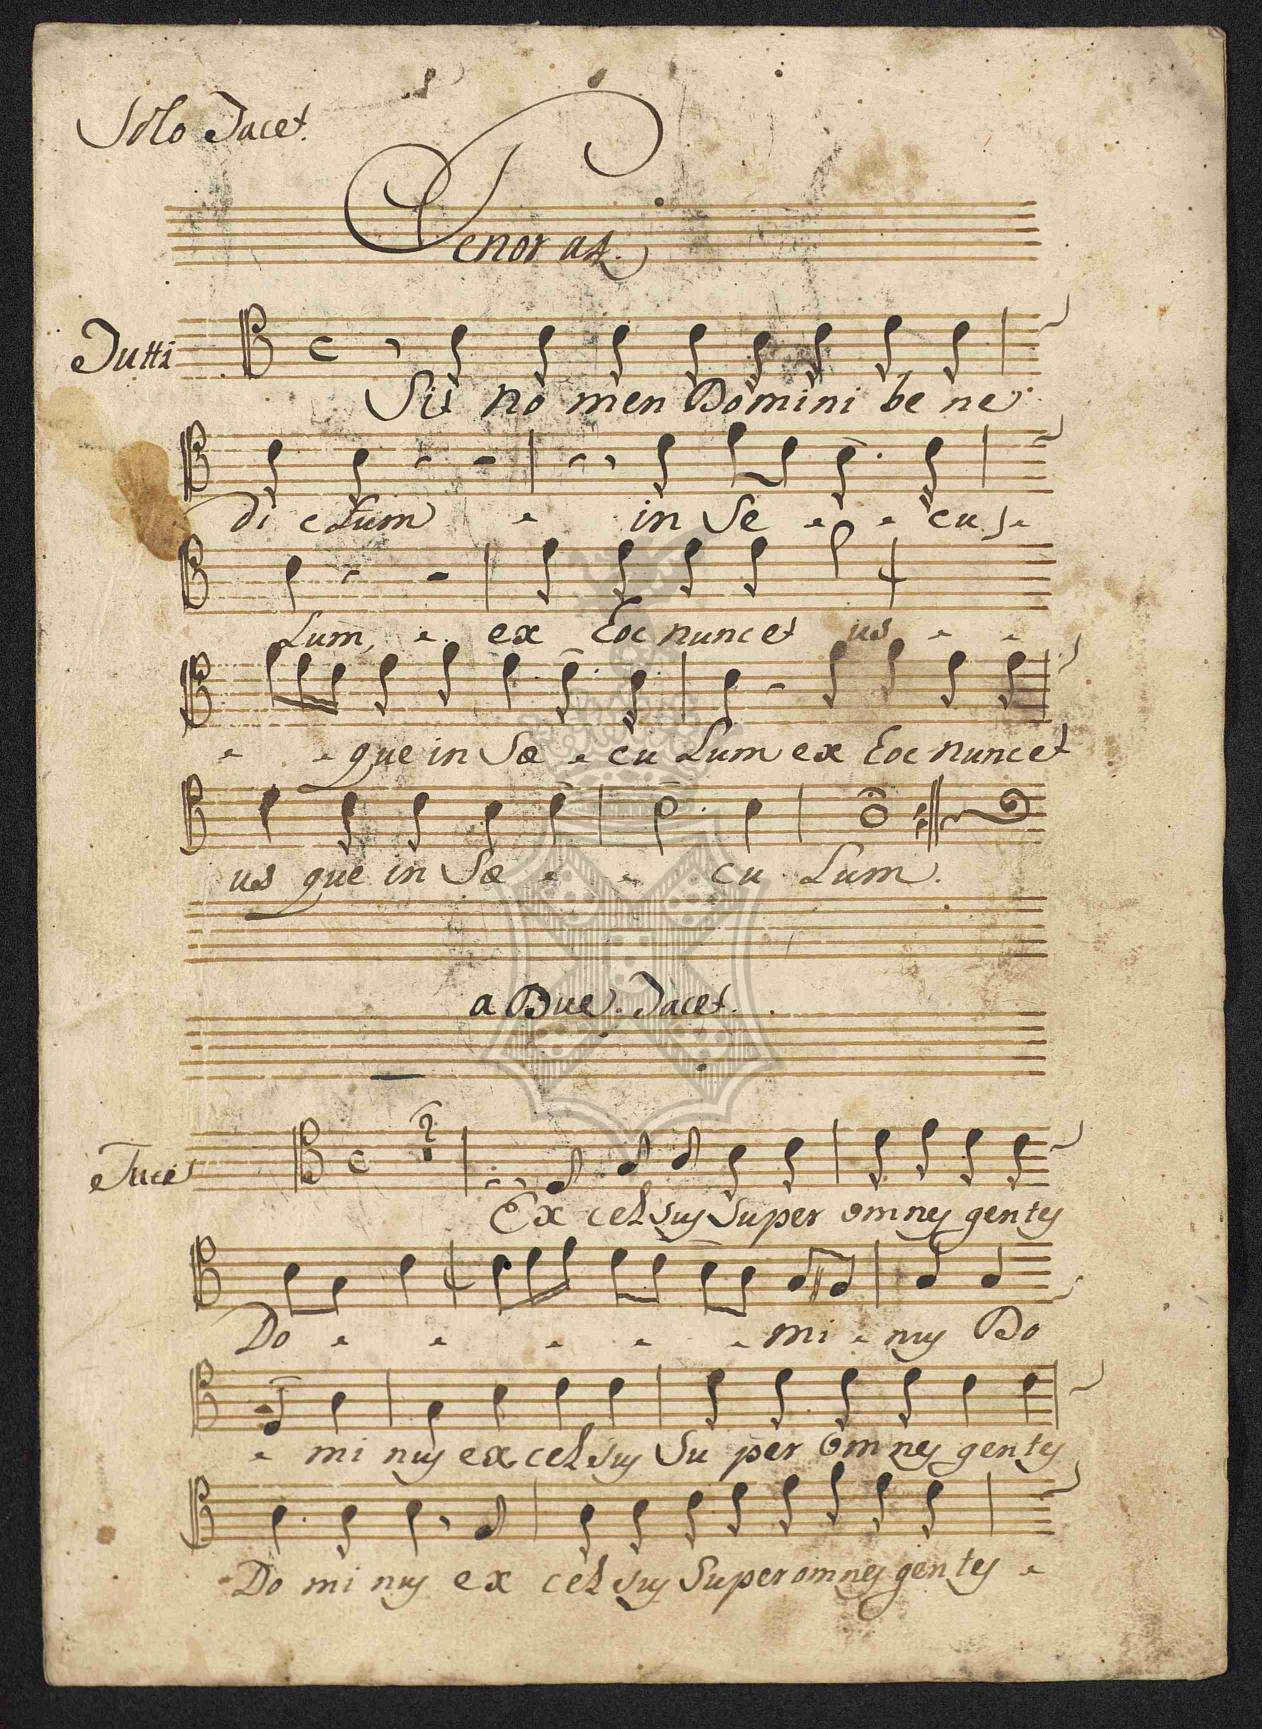 Solo Tacet.
Tenor a 4.
Tutti
Sit no men Domini be ne
di ctum - in Se - - cu -
Lum, - ex hoc nunc et us - -
- - que in Sæ - cu Lum ex hoc nunc et
us que in Sæ - - cu Lum.
a Due. Tacet.
2
Ex cel sus Super omnes gentes
Do - - - - - mi - nus Do
- mi nus ex cel sus Su per Omnes gentes
Do mi nus ex cel sus Super omnes gentes -